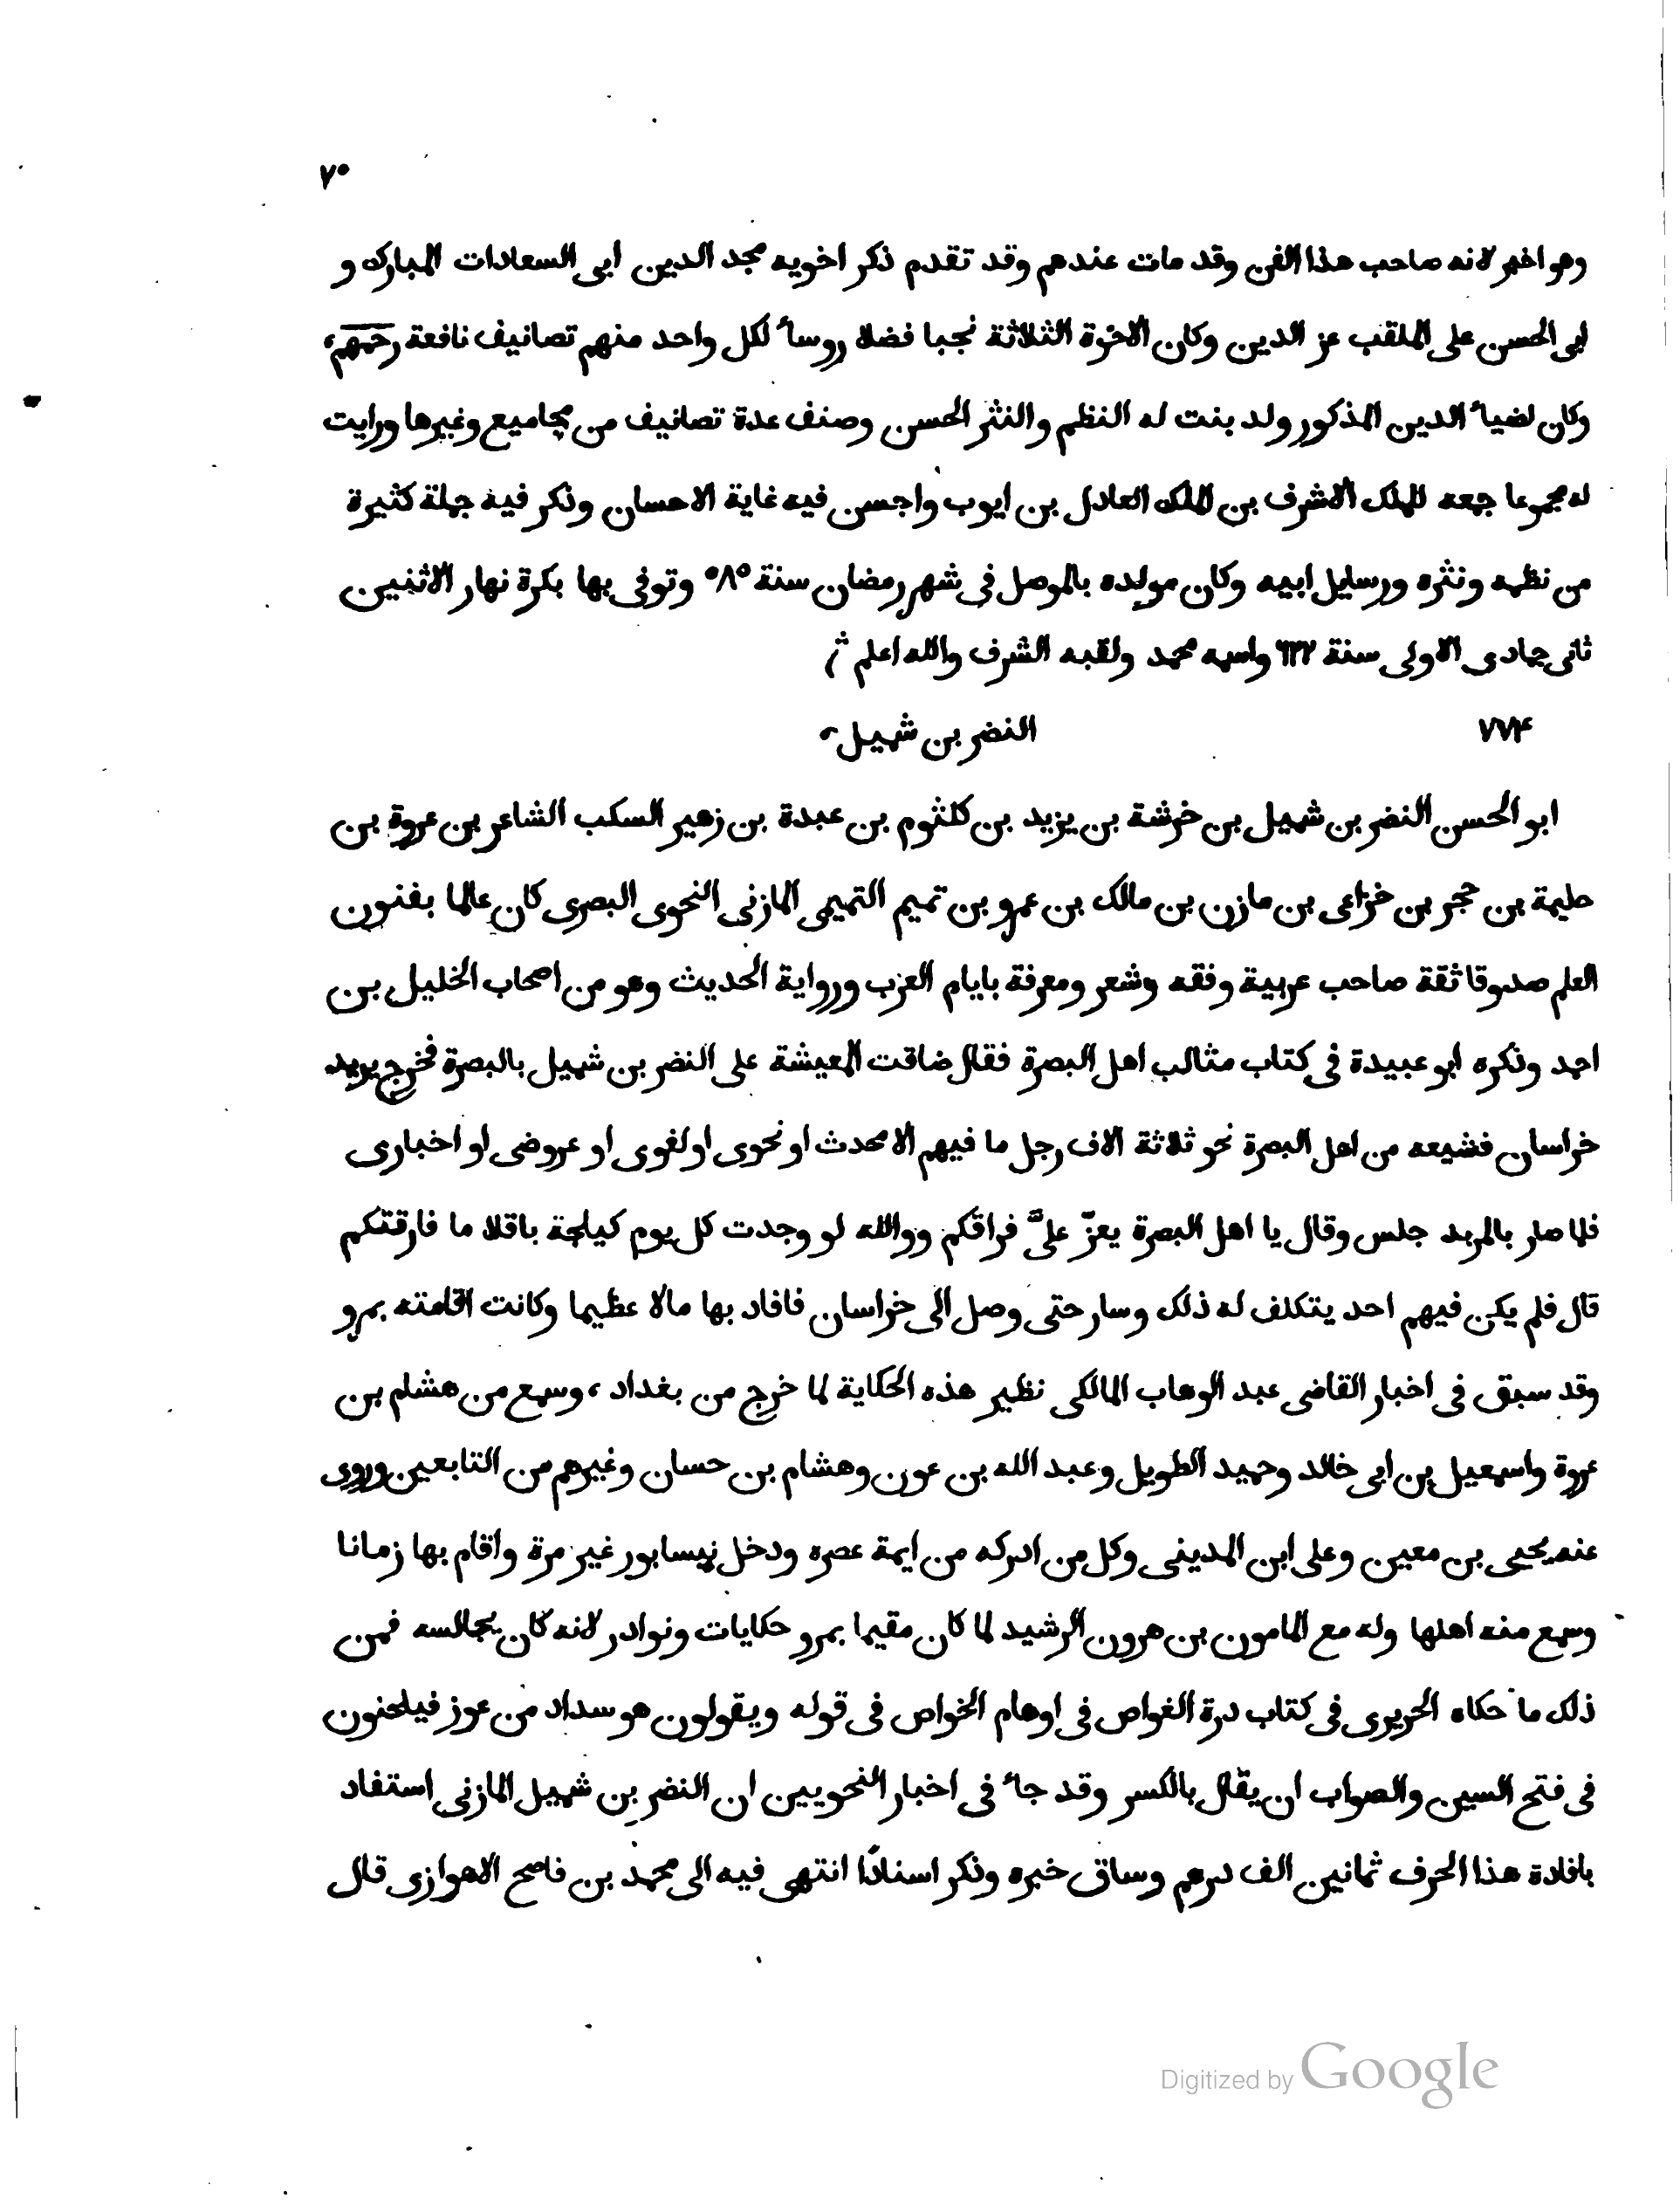 ٧٥
وهو اخبر لانه صاحب هذا الفن وقد مات عندهم وقد تقدم ذكر اخويه مجد الدين ابى السعادات المبارك و
ابى الحسن على الملقب عز الدين وكان الاخوة الثلاثة نجبا فضلا روسأ لكل واحد منهم تصانيف نافعة رحمهم
وكان لضيأ الدين المذكور ولد بنت له النظم والنثر الحسن وصنف عدة تصانيف من مجاميع وغيرها ورايت
له مجموعا جمعه للملك الاشرف بن الملك العادل بن ايوب واحسن فيه غاية الاحسان وذكر فيه جملة كثيرة
من نظمه ونثره ورسايل ابيه وكان مولده بالموصل فى شهر رمضان سنة ٥٨٥ وتوفى بها بكرة نهار الاثنين
ثانى جمادى الاولى سنة ٦٢٢ واسمه محمد ولقبه الشرف والله اعلم
٧٧٤ النضر بن شميل
ابو الحسن النضر بن شميل بن خرشة بن يزيد بن كلثوم بن عبدة بن زهير السكب الشاعر بن عروة بن
حليمة بن حجر بن خزاعى بن مازن بن مالك بن عمرو بن تميم التميمى المازنى النحوى البصرى كان عالما بفنون
العلم صدوقا ثقة صاحب عربية وفقه وشعر ومعرفة بايام العرب ورواية الحديث وهو من اصحاب الخليل بن
احمد وذكره ابو عبيدة فى كتاب مثالب اهل البصرة فقال ضاقت المعيشة على النضر بن شميل بالبصرة فخرج يريد
خراسان فشيعه من اهل البصرة نحو ثلاثة الاف رجل ما فيهم الا محدث او نحوى او لغوى او عروضى او اخبارى
فلما صار بالمربد جلس وقال يا اهل البصرة يعزّ علىَّ فراقكم ووالله لو وجدت كل يوم كيلجة باقلا ما فارقتكم
قال فلم يكن فيهم احد يتكلف له ذلك وسار حتى وصل الى خراسان فافاد بها مالا عظيما وكانت اقامته بمرو
وقد سبق فى اخبار القاضى عبد الوهاب المالكى نظير هذه الحكاية لما خرج من بغداد، وسمع من هشام بن
عروة واسمعيل بن ابى خالد وحميد الطويل وعبد الله بن عون وهشام بن حسان وغيرهم من التابعين وروى
عنه يحيى بن معين وعلى ابن المدينى وكل من ادركه من ايمة عصره ودخل نيسابور غير مرة واقام بها زمانا
وسمع منه اهلها وله مع المامون بن هرون الرشيد لما كان مقيما بمرو حكايات ونوادر لانه كان يجالسه فمن
ذلك ما حكاه الحريرى فى كتاب درة الغواص فى اوهام الخواص فى قوله ويقولون هو سداد من عوز فيلحنون
فى فتح السين والصواب ان يقال بالكسر وقد جأ فى اخبار النحويين ان النضر بن شميل المازنى استفاد
بافادة هذا الحرف ثمانين الف درهم وساق خبره وذكر اسنادًا انتهى فيه الى محمد بن ناصح الاهوازى قال
Digitized by Google